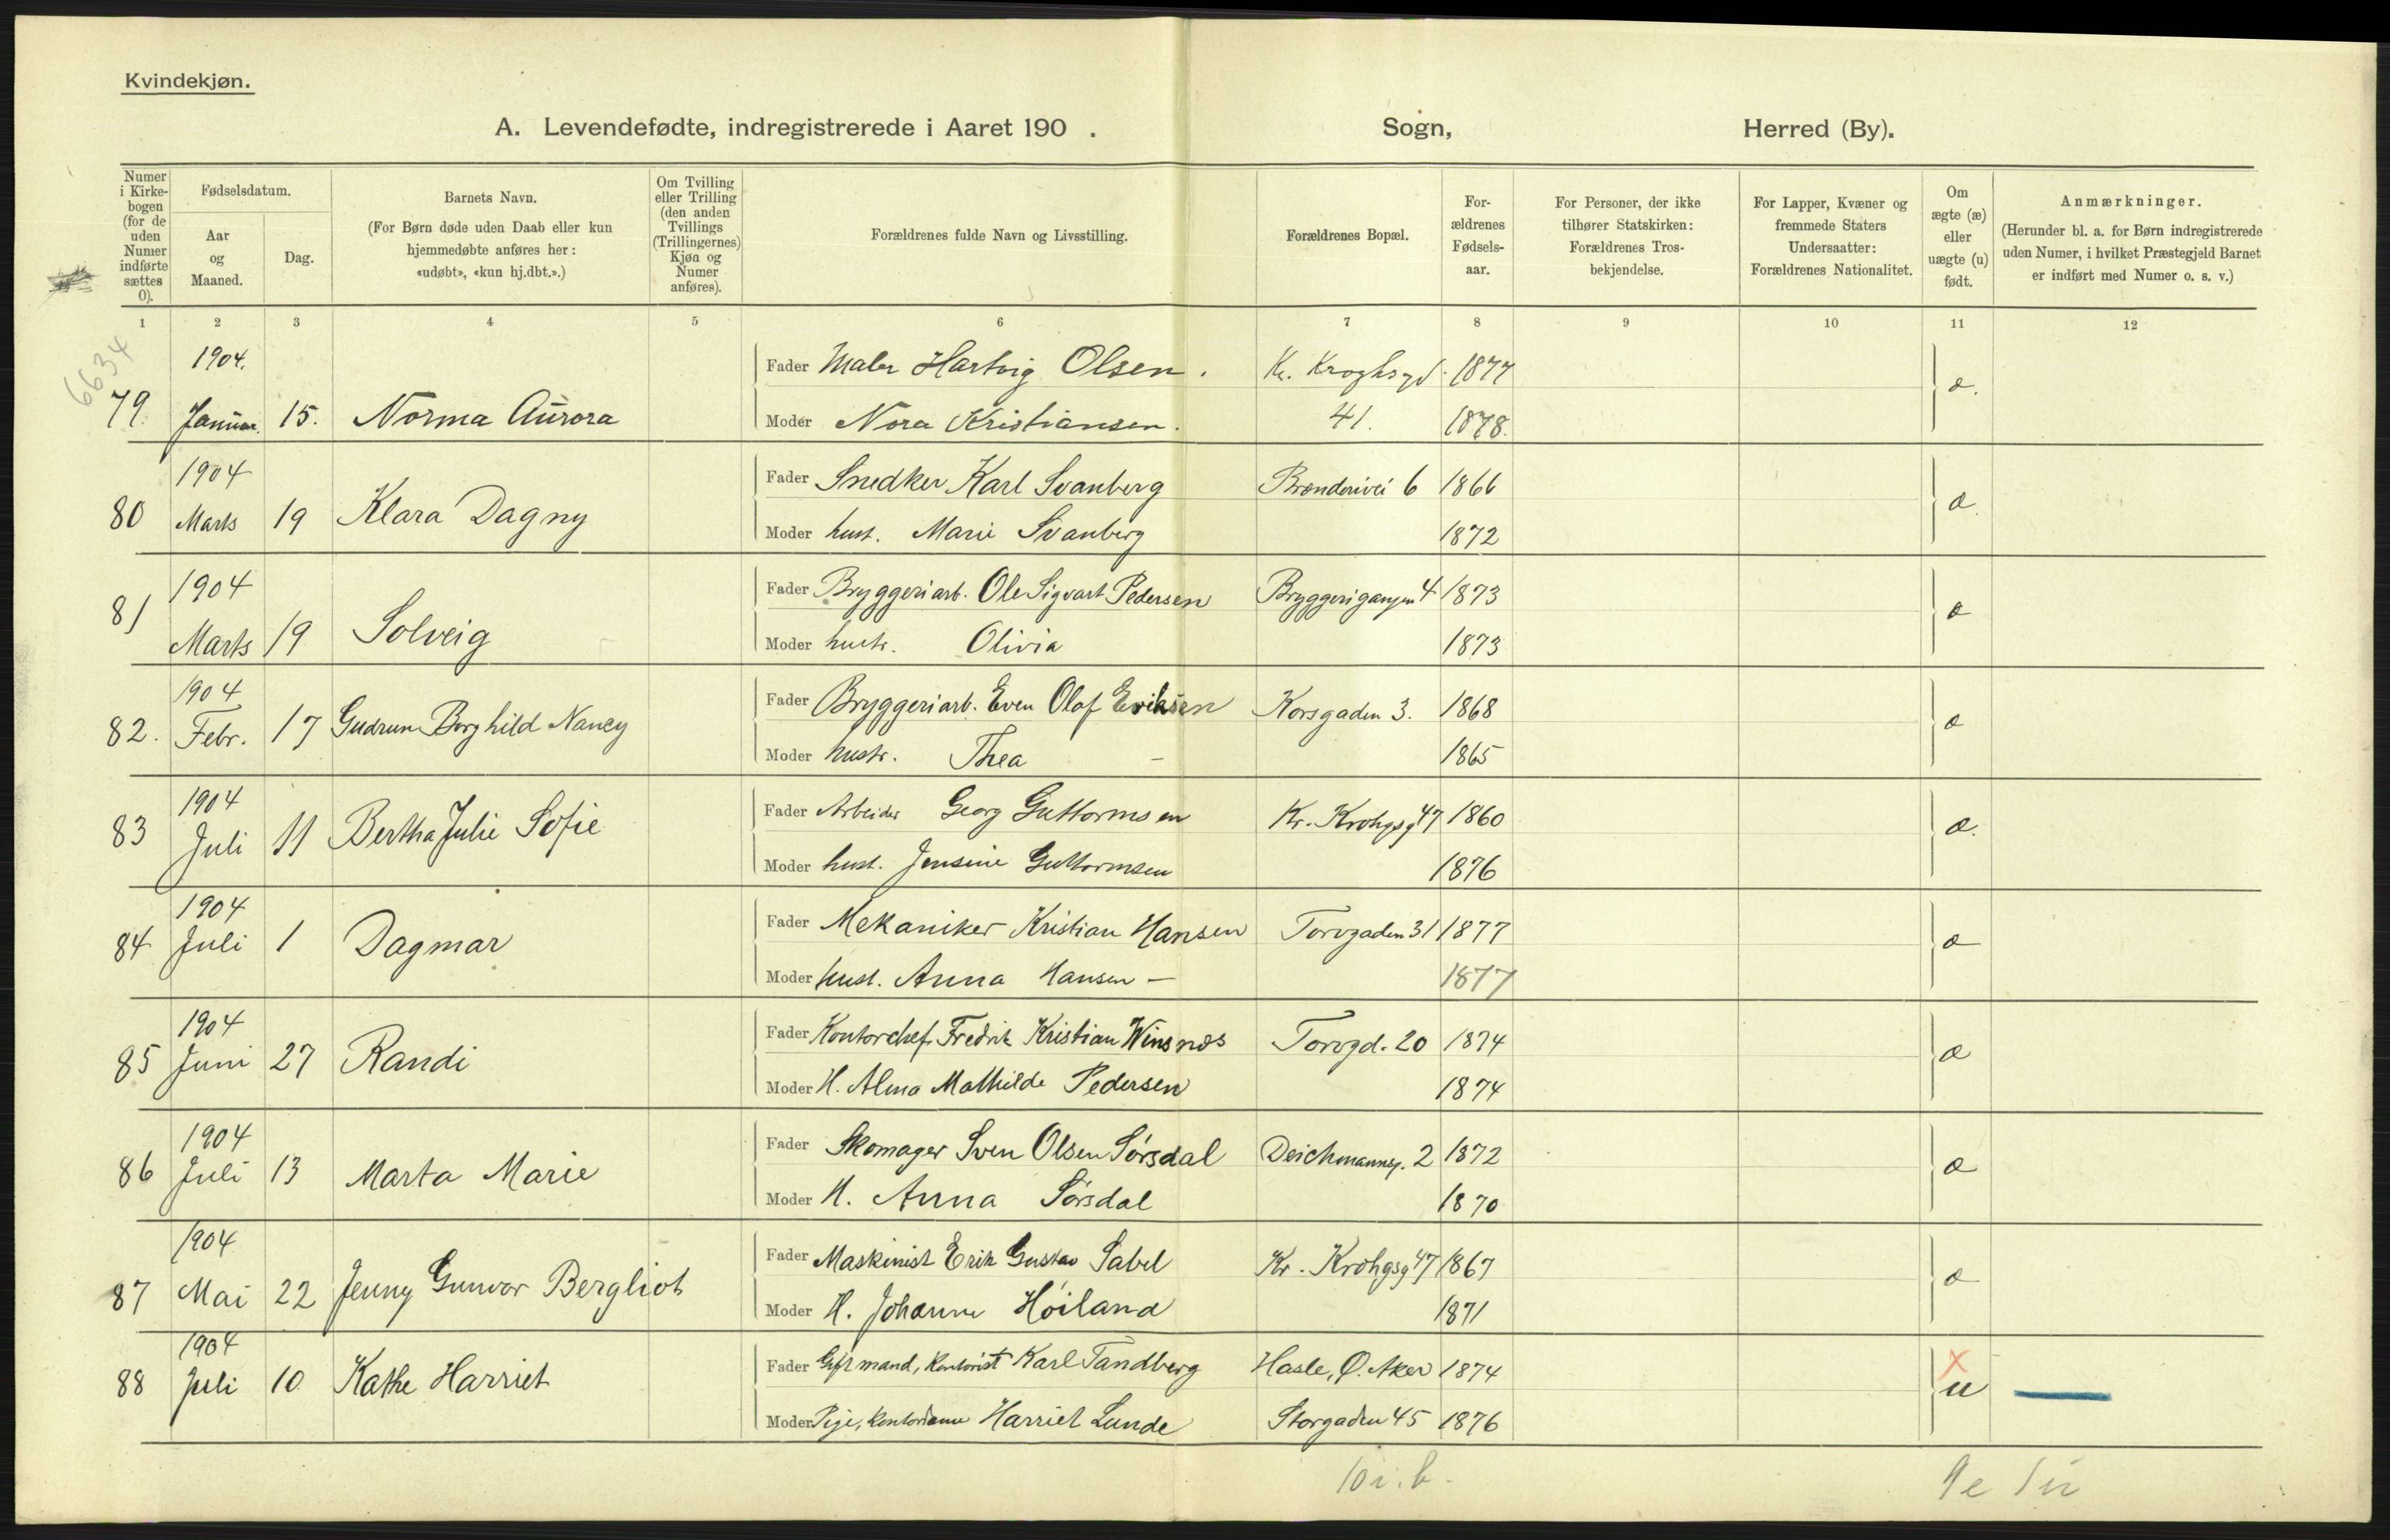 Kvindekjøn.
A. Levendefødte, indregistrerede i Aaret 190 . Sogn, Herred (By).
Numer i Kirkebogen (for de uden Numer indførte sættes 0).
Fødselsdatum.
Aar og Maaned.
Dag.
Barnets Navn.
(For Børn døde uden Daab eller kun hjemmedøbte anføres her: «udøbt», «kun hj.dbt.».)
Om Tvilling eller Trilling (den anden Tvillings (Trillingernes) Kjøn og Numer anføres).
Forældrenes fulde Navn og Livsstilling.
Forældrenes Bopæl.
Forældrenes Fødselsaar.
For Personer, der ikke tilhører Statskirken: Forældrenes Trosbekjendelse.
For Lapper, Kvæner og fremmede Staters Undersaatter: Forældrenes Nationalitet.
Om ægte (æ) eller uægte (u) født.
Anmærkninger.
(Herunder bl. a. for Børn indregistrerede uden Numer, i hvilket Præstegjeld Barnet er indført med Numer o. s. v.)
1 2 3 4 5 6 7 8 9 10 11 12
6634
1904. Fader Maler Hartvig Olsen. Kr. Kroghsgd. 1877 æ.
79. Januar. 15. Norma Aurora Moder Nora Kristiansen. 41. 1878.
1904 Fader Snedker Karl Svanberg Brænderivei 6 1866 æ.
80 Marts 19 Klara Dagny Moder hust. Marie Svanberg 1872
1904 Fader Bryggeriarb. Ole Sigvart Pedersen Bryggerigangen 4 1873 æ
81 Marts 19 Solveig Moder hustr. Olivia 1873
1904 Fader Bryggeriarb. Even Olaf Eriksen Korsgaden 3. 1868 æ
82. Febr. 17 Gudrun Borghild Nancy Moder hustr. Thea - 1865
1904 Fader Arbeider Georg Guttormsen Kr. Krohgsg 47 1860 æ.
83 Juli 11 Bertha Julie Sofie Moder hust. Jensine Guttormsen 1876
1904 Fader Mekaniker Kristian Hansen Torvgaden 31 1877 æ
84 Juli 1 Dagmar Moder hust. Anna Hansen - 1877
1904 Fader Kontorchef Fredrik Kristian Winsnæs Torvgd. 20 1874 æ
85 Juni 27 Randi Moder H. Alma Mathilde Pedersen 1874
1904 Fader Skomager Sven Olsen Sørsdal Deichmannsg. 2 1872 æ
86 Juli 13 Marta Marie Moder H. Anna Sørsdal 1870
1904 Fader Maskinist Erik Gustav Sabel Kr. Krohgsg 47 1867 æ
87 Mai 22 Jenny Gunvor Bergliot Moder H. Johanne Høiland 1871
1904 Fader Gift mand, Kontorist Karl Tandberg Hasle, Ø. Aker 1874 x
88 Juli 10 Kathe Harriet Moder Pige, Kontordame Harriet Lunde Storgaden 45 1876 u
10 i. b. 9 e 1 u